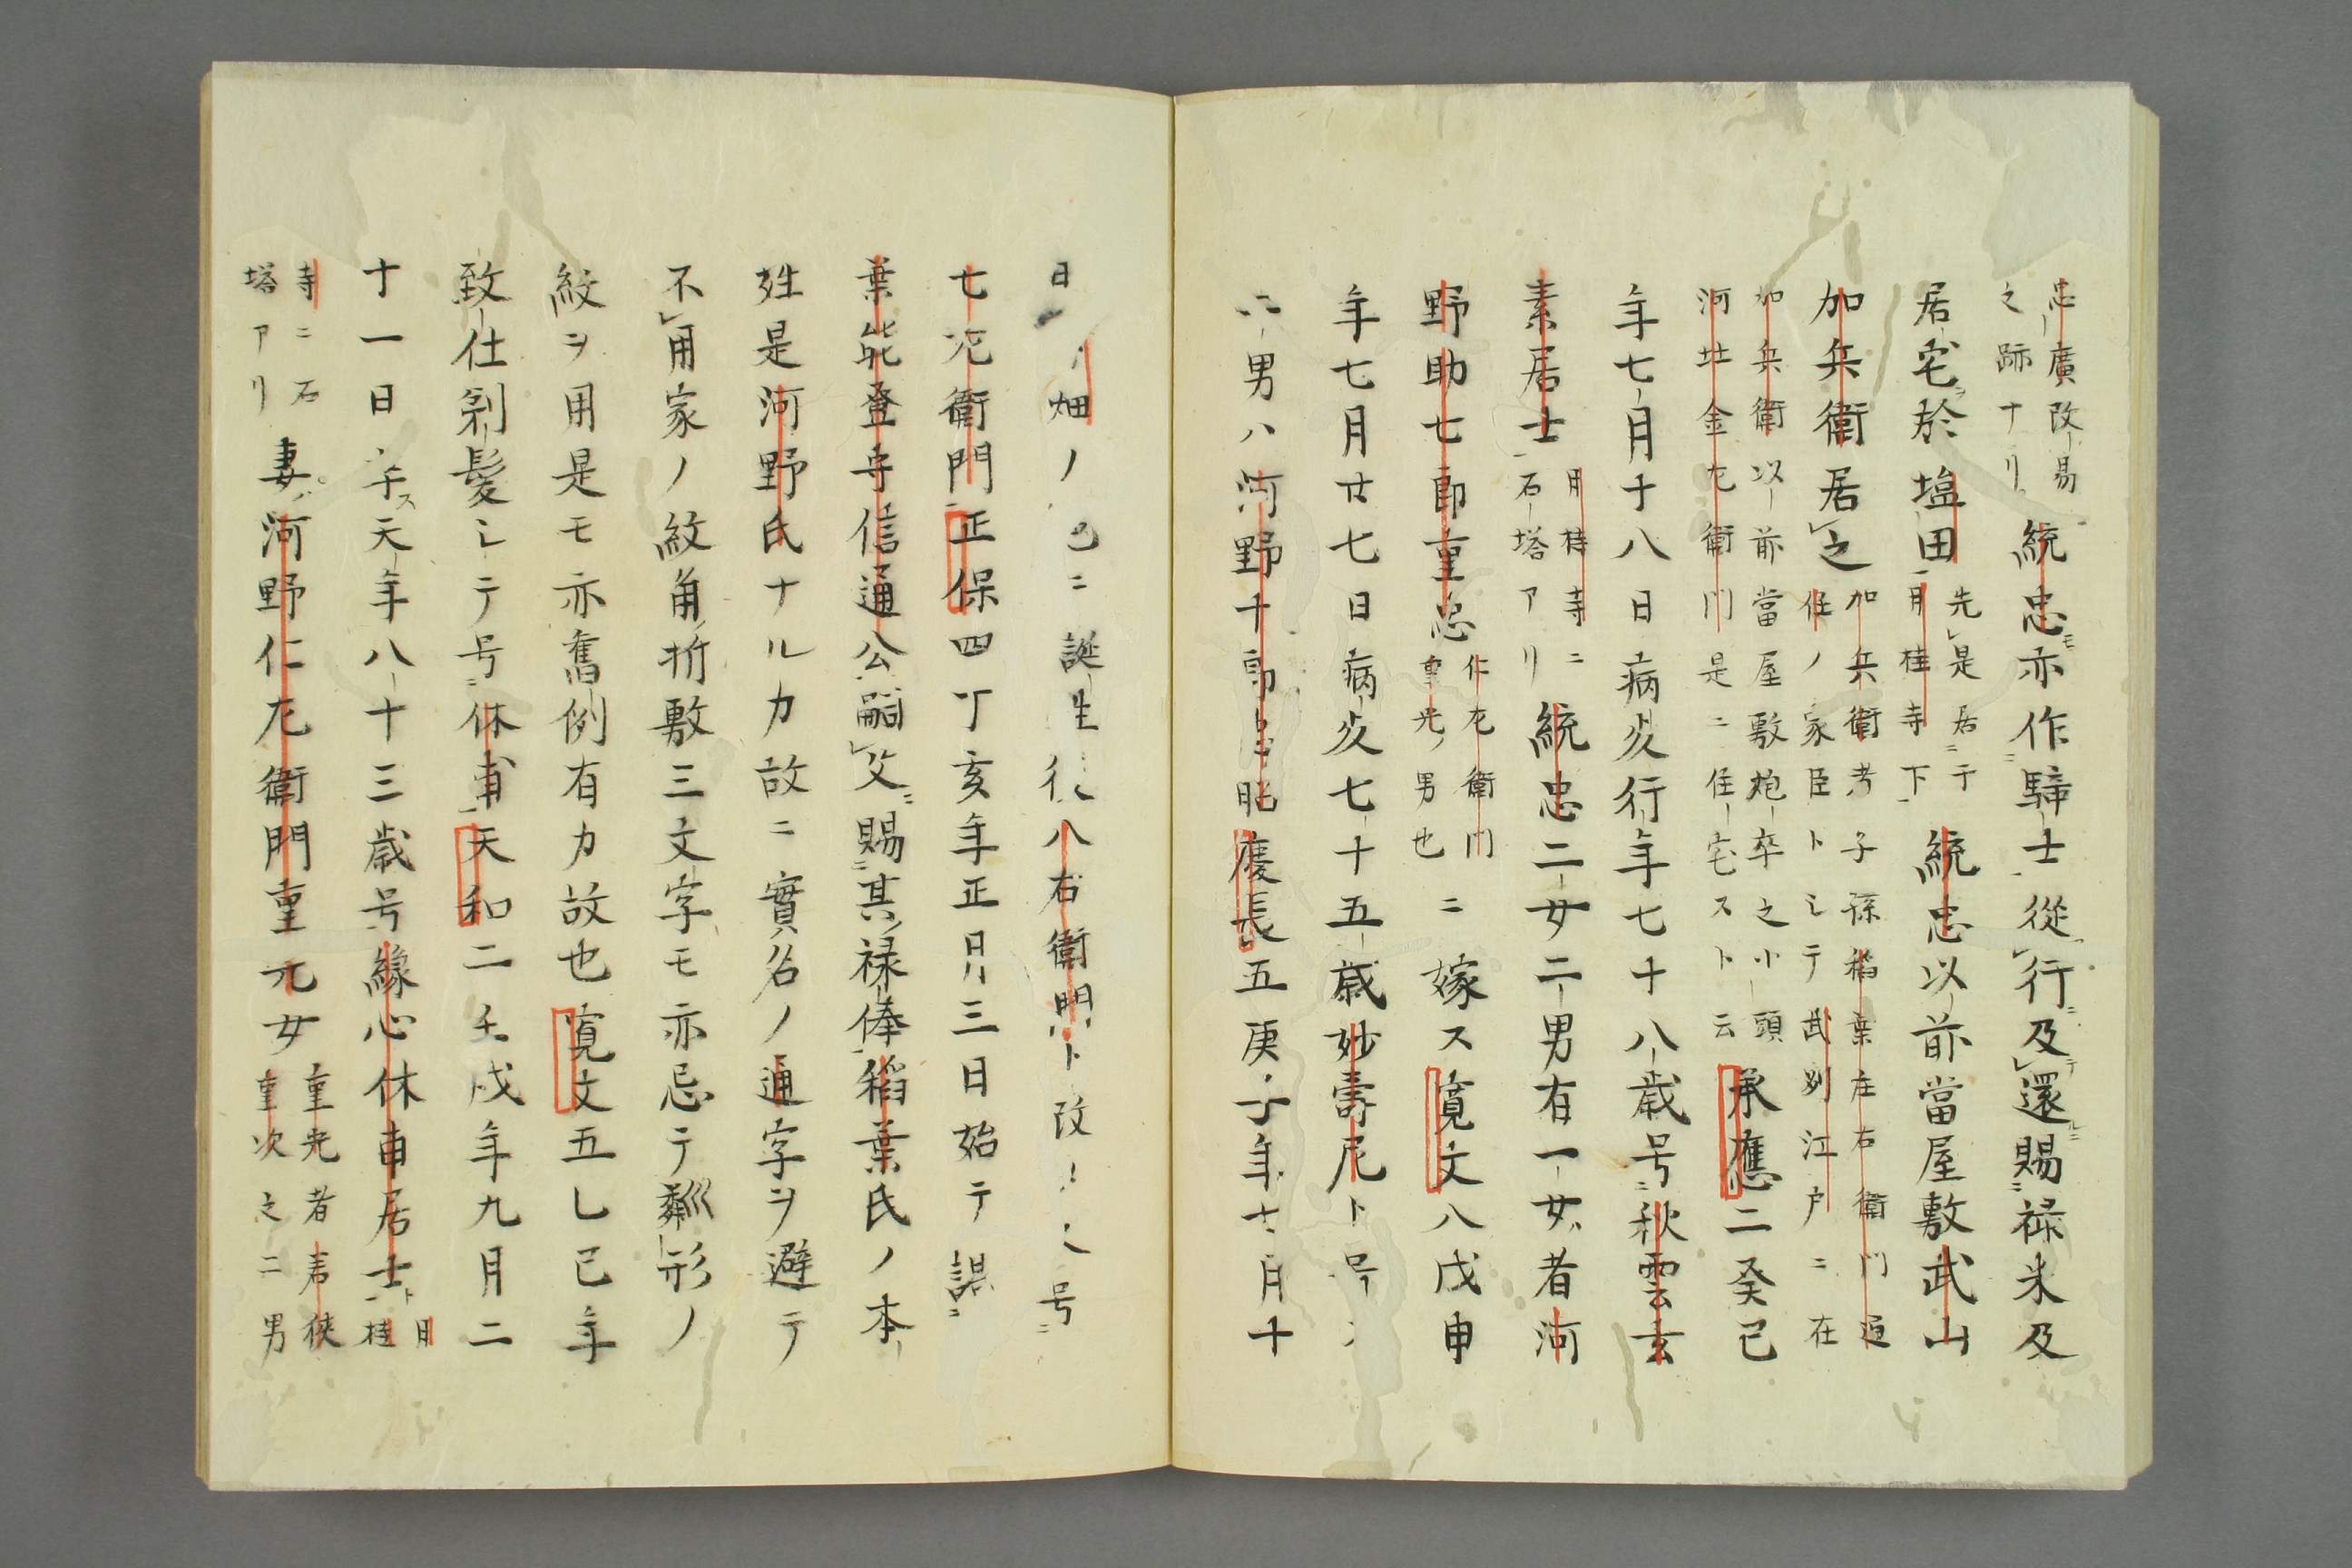 忠廣改易
之跡ナリ
統忠モ亦作騎士從行ニ及還ルニ賜ニ禄米及
居宅ヲ於塩田
先是居ニ于
月桂寺下
統忠以前當屋敷武山
加兵衛居之
加兵衛考子孫稲葉左右衛門迠
任ノ家臣トシテ武刕江戸ニ在
加兵衛以前當屋敷炮卒之小頭
河辻金左衛門是ニ住宅スト云
承應二癸巳
年七月十八日病死行年七十八歳号ニ秋雲玄
素居士
月桂寺ニ
石塔アリ
統忠二女二男有一女ハ者河
野助七郎重忠
仁左衛門
重光ノ男也
ニ嫁ス寛文八戊申
年七月廿七日病死七十五歳妙壽尼ト号
男ハ河野千郎忠昭慶長五庚子年七月十
日 畑ノ ニ誕生 八右衛門ト改 号ニ
七左衛門正保四丁亥年正月三日始テ謁ニ
葉能登守信通公嗣父ニ賜ニ其禄俸稲葉氏ノ本
姓是河野氏ナルカ故ニ實名ノ通字ヲ避テ
不用家ノ紋角折敷三文字モ亦忌テ粼形ノ
紋ヲ用是モ亦舊例有カ故也寛文五乙巳年
致仕剃髪シテ号ニ休甫天和二壬戌年九月二
十一日卒ス天年八十三歳号縁心休甫居士ト
月桂
寺ニ石
塔アリ
妻ハ河野仁左衛門重元女
重光者若狭
重次之二男